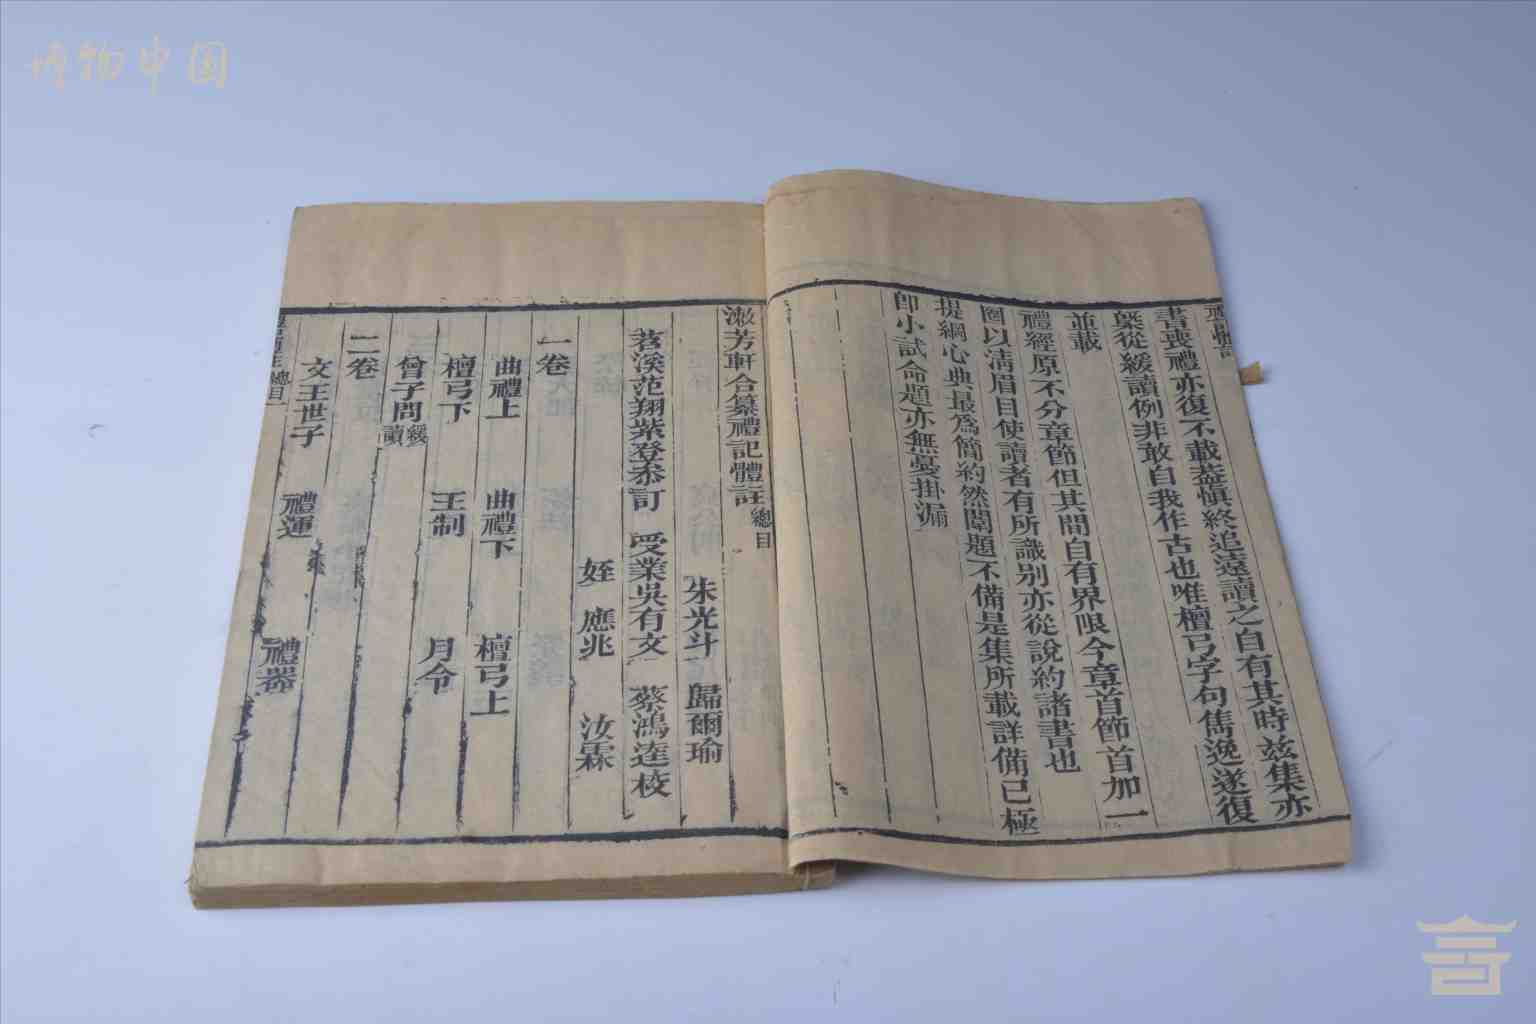 博物中国
書喪禮亦復不載蓋慎終追遠讀之自有其時茲集亦
槩從緩讀例非敢自我作古也唯檀弓字句雋逸遂復
並載
禮經原不分章節但其間自有界限今章首節首加一
圈以清眉目使讀者有所識別亦從說約諸書也
提綱心典最爲簡約然闈題不備是集所載詳備已極
卽小試命題亦無憂掛漏
漱芳軒合纂禮記體註總目
朱光斗 歸爾瑜
苕溪范翔紫登叅訂 受業吳有文 蔡鴻逵校
姪 應兆 汝霖
一卷
曲禮上 曲禮下 檀弓上
檀弓下 王制 月令
曾子問緩讀
二卷
文王世子 禮運 禮器
總目